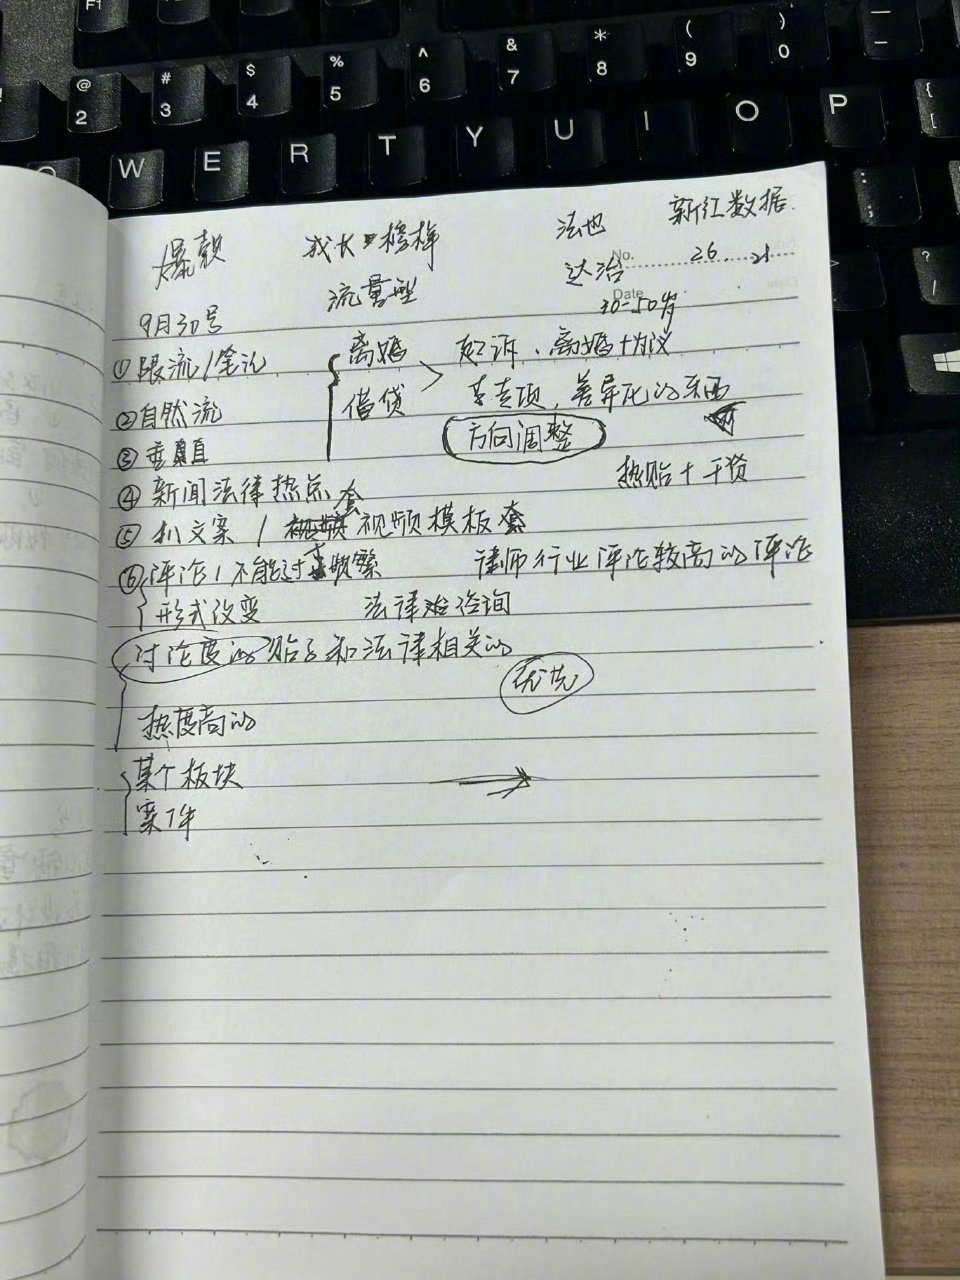 F1
@ 2 # 3 $ 4 % 5 ^ 6 & 7 * 8 ( 9 ) 0
Q W E R T Y U I O P
爆款 成长 榜样 法也 新红数据
流量型 达治 No. 26 21
Date 30-50岁
9月30号
①限流/ 离婚 起诉、离婚协议
②自然流 借贷 专项,差异化的东西
③垂直 方向调整
④新闻法律热点套 热贴+干货
⑤扒文案/视频模板套
⑥评论/不能过于频繁 律师行业评论较高的评论
形式改变 法律 咨询
讨论度的贴子和法律相关的
优先
热度高的
某个板块
案件